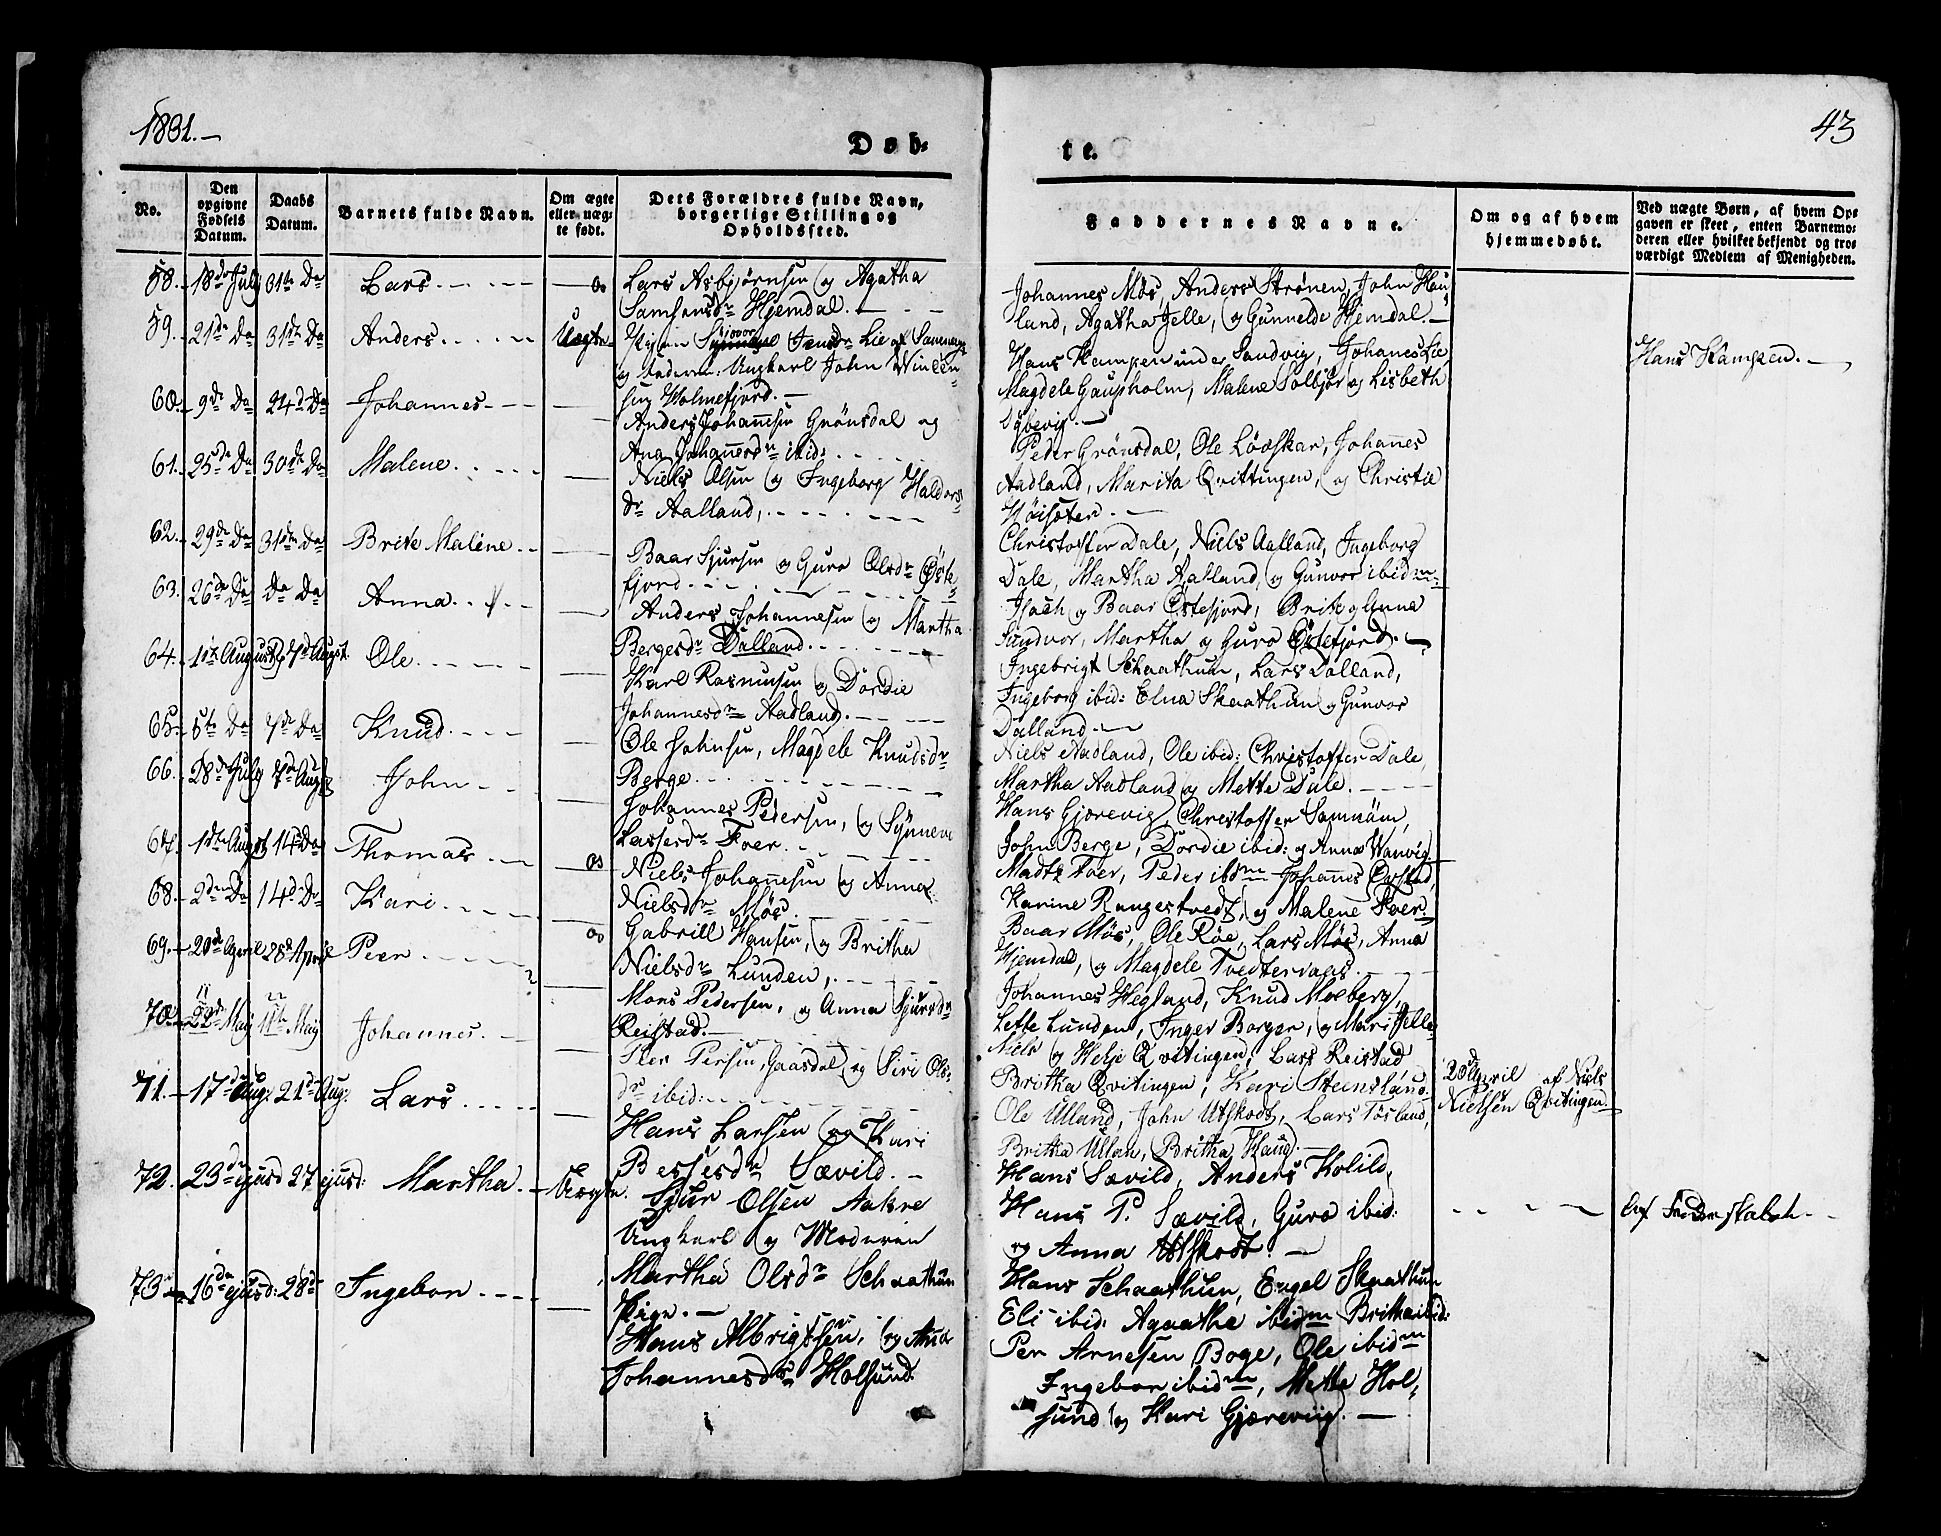 1831.-
43
Døb-
te.
No.
Den opgivne Fødsels Datum.
Daabs Datum.
Barnets fulde Navn.
Om ægte eller uægte født.
Dets Forældres fulde Navn, borgerlige Stilling og Opholdssted.
Faddernes Navne.
Om og af hvem hjemmedøbt.
Ved uægte Børn, af hvem Opgaven er skeet, enten Barnemoderen eller hvilket bekjendt og troværdigt Medlem af Menigheden.
58. 18de July 31te Do Lars
Lars Asbjørnsen og Agatha
Samsonsdr Hjemdal.
Johannes Møs, Anders Strønen, John Hau-
land, Agatha Jelle, og Gunnelde Hjemdal.
59. 21de Do 31de Do Anders Uægte
Pigen Jensdr Lie af
og Faderen: Ungkarl John
Holmefjord.
Hans Kempen under Sandvig, Johanes Lie
Magdele Gaupholm, Malene Solbjør og Lisbeth
Hans Kampen.
60. 9de Do 24de Do Johannes
Anders Johannesen Grønsdal og
Ana Johannesdr ibid:
Peder Grønsdal, Ole Lødskar, Johannes
Aadland, Marita Qvittingen, og Christie
Høisæter.
61. 25de Do 30de Do Malene
Niels Olsen og Ingeborg Haldors-
dr Aalland,
Christoffer Dale, Niels Aalland, Ingeborg
Dale, Martha Aalland, og Gunvor ibidm:
62. 29de Do 31de Do Brite Malene
Baar Sjursen og Guro Olsdr Øste-
fjord.
Isach og Baar Østefjord, Brite og Anna
Sundvor, Martha og Guro Østefjord.
63. 26de Do Do Do Anna
Anders Johannesen og Martha
Bergesdr Dalland.
Ingebrigt Schaathun, Lars Dalland,
Ingeborg ibid: Elna Skaathun og Gunvor
Dalland.
64. 1ste August 7de August Ole
Karl Rasmusen og Dordie
Johannesdr Aadland.
Niels Aadland, Ole ibid: Christoffer Dale,
Martha Aadland og Mette Dale.
65. 5te Do 7de Do Knud
Ole Johnsen, Magdele Knudsdr
Berge.
Hans Gjærevig, Christoffer Samnøm,
John Berge, Dordie ibid: og Anna Wanvig
66. 28de July 7de Augst John
Johannes Pedersen, og Synneve
Lassesdr Foer.
Madtz Foer, Peder ibidm Johannes
Karine Rangestvedt, og Malene Foer.
67. 1ste August 14de Do Thomas
Niels Johannesen og Anna
Nielsdr Møs.
Baar Møs, Ole Røe, Lars Møs, Anna
Hjemdal, og Magdele Tvedteraas.
68. 2den Do 14de Do Kari
Gabrill Hansen, og Britha
Nielsdr Lunden,
Johannes Hegland, Knud Moeberg,
Lette Lunden, Inger Borgen, og Mari Jelle
69. 20de April 28de April Peer
Mons Pedersen, og Anna Sjursdr
Reistad.
Niels og Helje Qvitingen, Lars Reistad
Britha Qvitingen, Kari Steensland.
20de April af Niels
Nielsen Qvitingen
70. May May Johannes
Peer Persen, Gaasdal og Siri Ols-
dr ibid:
Ole Ulland, John Utskodt, Lars Tøsland,
Britha Ullan, Britha Haug.
71. 17de Aug. 21de Aug. Lars
Hans Larsen og Kari
Bessesdr Sævild.
Hans Sævild, Anders Kolild,
Hans P. Sævild, Guro ibid:
og Anna Utskodt.
72. 23de ejusd 27 ejusd: Martha Uægte.
Sjur Olsen Aakre
Ungkarl og Moderen
Martha Olsdr Schaathun
Pige.
Hans Schaathun, Engel Skaathun
Eli ibid: Agaathe ibidm Britha ibid:
73. 16de ejusd: 28de Ingebor
Hans Albrigtsen, og Anna
Johannesdr Holsund.
Per Arnesen Boge, Ole ibidm
Ingebor ibidm, Mette Hol-
sund og Kari Gjæreviig.